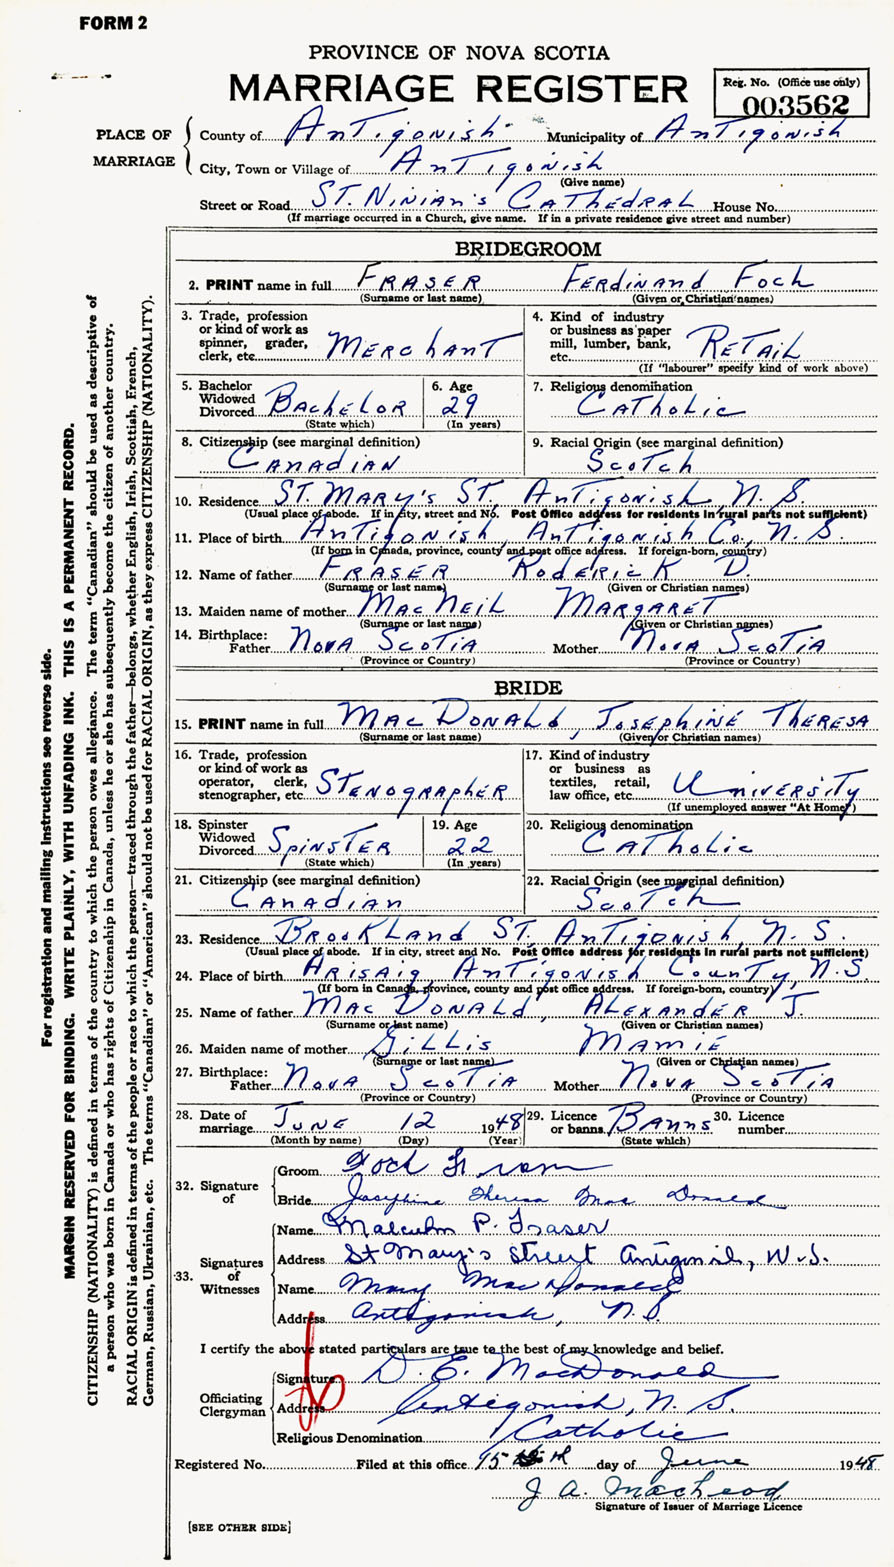 FORM 2
PROVINCE OF NOVA SCOTIA
MARRIAGE REGISTER
Reg. No. (Office use only)
003562
PLACE OF MARRIAGE
County of Antigonish Municipality of Antigonish
City, Town or Village of Antigonish
(Give name)
Street or Road St. Ninian's Cathedral House No.
(If marriage occurred in a Church, give name. If in a private residence give street and number)
BRIDEGROOM
2. PRINT name in full Fraser Ferdinand Foch
(Surname or last name) (Given or Christian names)
3. Trade, profession or kind of work as spinner, grader, clerk, etc. Merchant
4. Kind of industry or business as paper mill, lumber, bank, etc. Retail
(If "labourer" specify kind of work above)
5. Bachelor Widowed Divorced Bachelor
(State which)
6. Age 29
(In years)
7. Religious denomination
Catholic
8. Citizenship (see marginal definition)
Canadian
9. Racial Origin (see marginal definition)
Scotch
10. Residence St. Mary's St., Antigonish, N. S.
(Usual place of abode. If in city, street and No. Post Office address for residents in rural parts not sufficient)
11. Place of birth Antigonish, Antigonish Co., N. S.
(If born in Canada, province, county and post office address. If foreign-born, country)
12. Name of father Fraser Roderick D.
(Surname or last name) (Given or Christian names)
13. Maiden name of mother MacNeil Margaret
(Surname or last name) (Given or Christian names)
14. Birthplace: Father Nova Scotia Mother Nova Scotia
(Province or Country) (Province or Country)
BRIDE
15. PRINT name in full MacDonald, Josephine Theresa
(Surname or last name) (Given or Christian names)
16. Trade, profession or kind of work as operator, clerk, stenographer, etc. Stenographer
17. Kind of industry or business as textiles, retail, law office, etc. University
(If unemployed answer "At Home")
18. Spinster Widowed Divorced Spinster
(State which)
19. Age 22
(In years)
20. Religious denomination
Catholic
21. Citizenship (see marginal definition)
Canadian
22. Racial Origin (see marginal definition)
Scotch
23. Residence Brookland St. Antigonish, N. S.
(Usual place of abode. If in city, street and No. Post Office address for residents in rural parts not sufficient)
24. Place of birth Arisaig, Antigonish County, N. S.
(If born in Canada, province, county and post office address. If foreign-born, country)
25. Name of father MacDonald, Alexander J.
(Surname or last name) (Given or Christian names)
26. Maiden name of mother Gillis Mamie
(Surname or last name) (Given or Christian names)
27. Birthplace: Father Nova Scotia Mother Nova Scotia
(Province or Country) (Province or Country)
28. Date of marriage June 12 1948
(Month by name) (Day) (Year)
29. Licence or banns Banns
(State which)
30. Licence number
32. Signature of
Groom Foch Fraser
Bride Josephine Theresa MacDonald
33. Signatures of Witnesses
Name Malcolm P. Fraser
Address St Mary's Street Antigonish, N.S.
Name Mary MacDonald
Address Antigonish, N.S.
I certify the above stated particulars are true to the best of my knowledge and belief.
Officiating Clergyman
Signature D. E. MacDonald
Address Antigonish, N. S.
Religious Denomination Catholic
Registered No. Filed at this office 15th day of June 1948
J. A. MacLeod
Signature of Issuer of Marriage Licence
[SEE OTHER SIDE]
For registration and mailing instructions see reverse side.
MARGIN RESERVED FOR BINDING. WRITE PLAINLY, WITH UNFADING INK. THIS IS A PERMANENT RECORD.
CITIZENSHIP (NATIONALITY) is defined in terms of the country to which the person owes allegiance. The term "Canadian" should be used as descriptive of
a person who was born in Canada or who has rights of Citizenship in Canada, unless he or she has subsequently become the citizen of another country.
RACIAL ORIGIN is defined in terms of the people or race to which the person—traced through the father—belongs, whether English, Irish, Scottish, French,
German, Russian, Ukrainian, etc. The terms "Canadian" or "American" should not be used for RACIAL ORIGIN, as they express CITIZENSHIP (NATIONALITY).